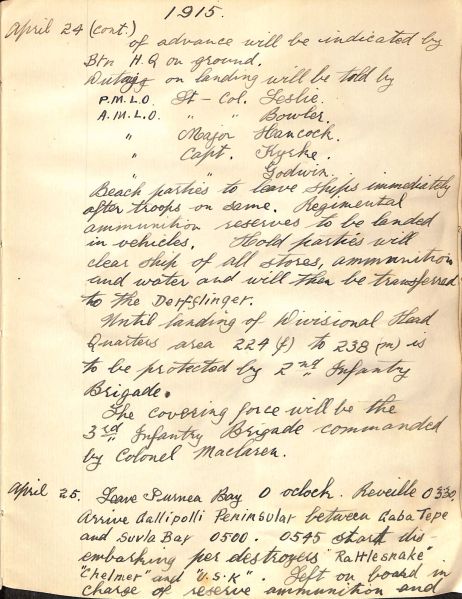 1915.
April 24 (cont.)
of advance will be indicated by
Btn H.Q on ground.
Duties on landing will be told by
P.M.L.O. Lt-Col. Leslie.
A.M.L.O. " " Bowler.
" Major Hancock.
" Capt. Kyrke.
" " Godwin.
Beach parties to leave ships immediately
after troops on same. Regimental
ammunition reserves to be landed
in vehicles. Hold parties will
clear ship of all stores, ammunition
and water and will then be transferred
to the Derfflinger.
Until landing of Divisional Head
Quarters area 224 (f) to 238 (m) is
to be protected by 2nd Infantry
Brigade.
The covering force will be the
3rd Infantry Brigade commanded
by Colonel Maclaren.
April 25. Leave Purnea Bay 0 oclock. Reveille 0330.
Arrive Gallipolli Peninsular between Gaba Tepe
and Suvla Bay 0500. 0545 start dis-
embarking per destroyers "Rattlesnake"
"Chelmer" and "U.S.K". Left on board in
charge of reserve ammunition and